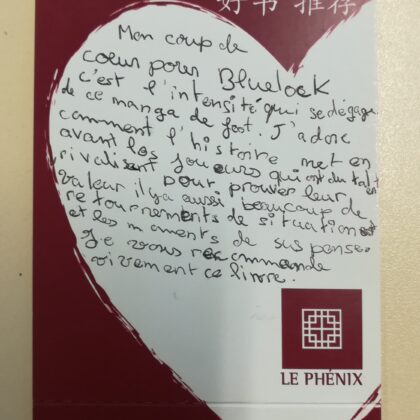 好书 推荐
Mon coup de
coeur pour Bluelock
c'est l'intensité qui se dégage
de ce manga de foot. J'adore
comment l'histoire met en
avant les joueurs qui ont du talent
rivalisent pour prouver leur
valeur il y a aussi beaucoup de
retournements de situations
et les moments de suspense.
Je vous recommande
vivement ce livre.
LE PHÉNIX